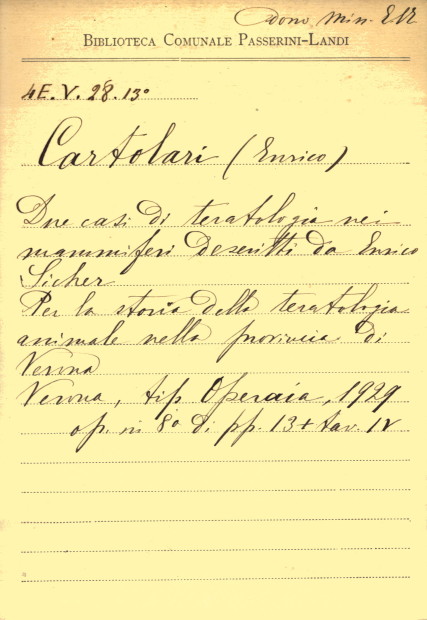 dono Min. EN
BIBLIOTECA COMUNALE PASSERINI-LANDI
4E.V.28.13°
Cartolari (Enrico)
Due casi di teratologia nei
mammiferi descritti da Enrico
Sicher
Per la storia della teratologia
animale nella provincia di
Verona
Verona, tip Operaia, 1929
op. in 8° di pp. 13 + tav. IV